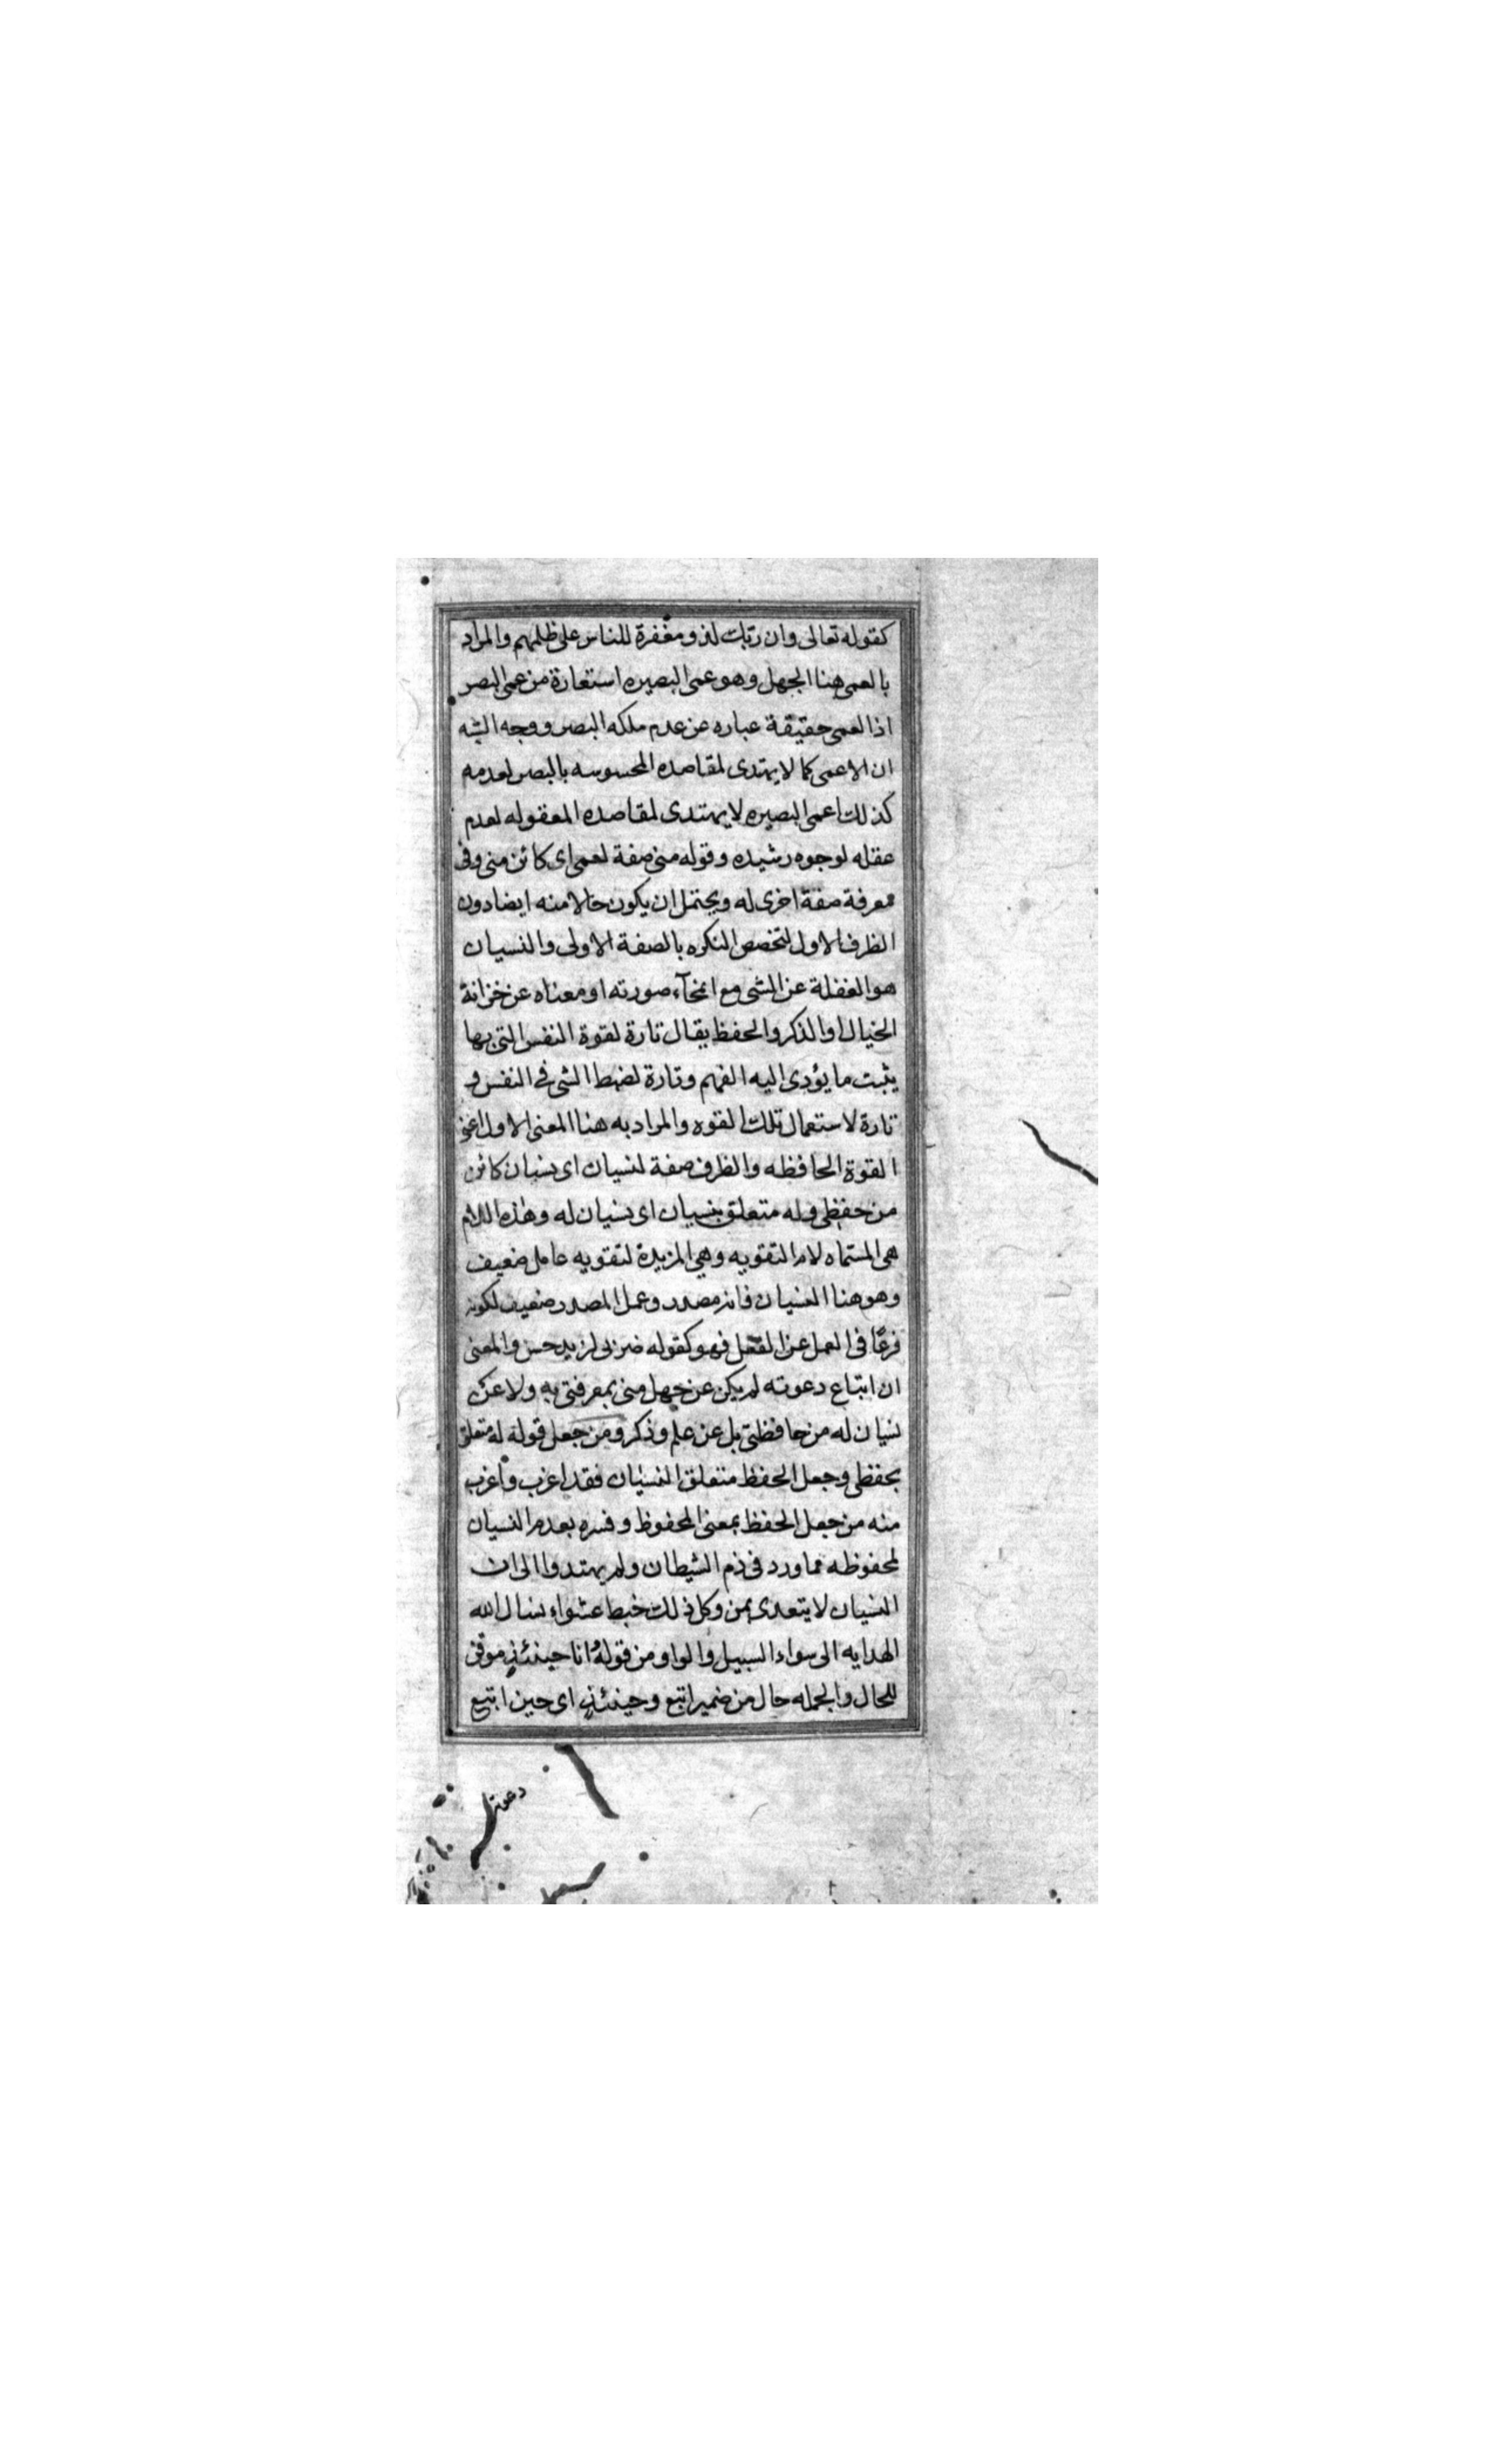 كقوله تعالى وان ربك لذو مغفرة للناس على ظلمهم والمراد
بالعمى هنا الجهل وهو عمى البصيره استعارة من عمى البصر
اذا لعمى حقيقة عباره عن عدم ملكه البصر ووجه الشبه
ان الاعمى كما لا يهتدى لمقاصده المحسوسه بالبصر لعدمه
كذلك اعمى البصيره لا يهتدى لمقاصده المعقوله لعدم
عقله لوجوه رشيده وقوله منى صفة لعمى اى كائن منى وفى
معرفة صفة اخرى له ويحتمل ان يكون حالا منه ايضا دون
الظرف الاول لتخصص النكره بالصفة الاولى والنسيان
هو الغفلة عن الشى مع انمحآء صورته او معناه عن خزانة
الخيال او الذكر والحفظ يقال تارة لقوة النفس التى بها
يثبت ما يؤدى اليه الفهم وتارة لضبط الشى فى النفس و
تارة لاستعمال تلك القوه والمراد به هنا المعنى الاول اعنى
القوة الحافظه والظرف صفة لنسيان اى نسيان كائن
من حفظى وله متعلق بنسيان اى نسيان له وهذه اللام
هى المسماه لام التقويه وهى المزيدة لتقويه عامل ضعيف
وهو هنا النسيان فانه مصدر وعمل المصدر ضعيف لكونه
فرعًا فى العمل عن الفعل فهو كقوله ضربى لزيد حسن والمعنى
ان اتباع دعوته لم يكن عن جهل منى بمعرفتى به ولا عن
نسيان له من حافظتى بل عن علم وذكر ومن جعل قوله له متعلق
بحفظى وجعل الحفظ متعلق النسيان فقد اغرب واغرب
منه من جعل الحفظ بمعنى المحفوظ وفسره بعدم النسيان
لمحفوظه مما ورد فى ذم الشيطان ولم يهتدوا الى ان
النسيان لا يتعدى بمن وكل ذلك خبط عشواء نسال الله
الهدايه الى سواء السبيل والواو من قوله وانا حينئذٍ موقن
للحال والجمله حال من ضمير اتبع وحينئذٍ اى حين اتبع
دعوته